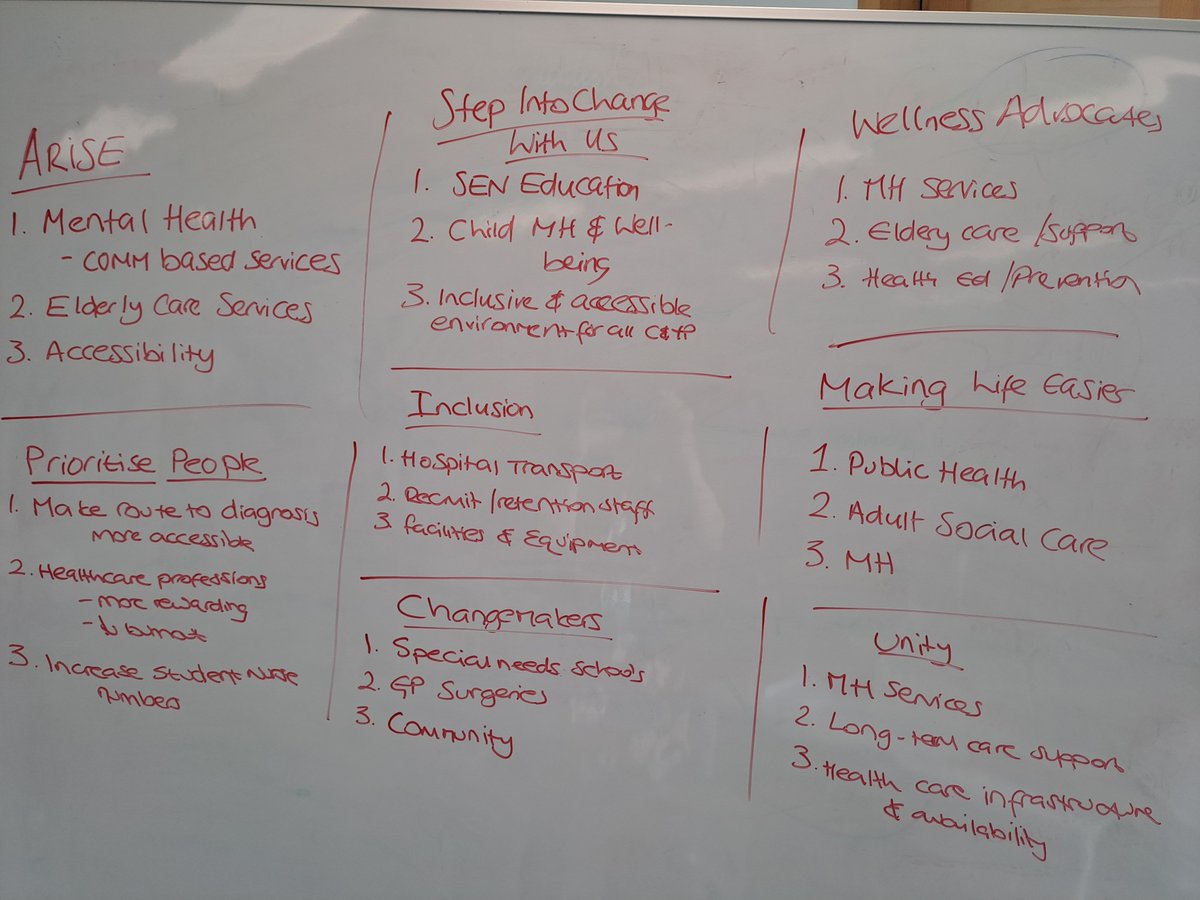 ARISE
1. Mental Health
- COMM based services
2. Elderly Care Services
3. Accessibility
Prioritise People
1. Make route to diagnosis
more accessible
2. Healthcare professions
- more rewarding
- ↓ burnout
3. Increase student nurse
numbers
Step Into Change
With Us
1. SEN Education
2. Child MH & Well-
being
3. Inclusive & accessible
environment for all C&YP
Inclusion
1. Hospital Transport
2. Recruit/retention staff
3. facilities & Equipment
Changemakers
1. Special needs schools
2. GP Surgeries
3. Community
Wellness Advocates
1. MH Services
2. Eldery care/support
3. Health Ed/Prevention
Making Life Easier
1. Public Health
2. Adult Social Care
3. MH
Unity
1. MH Services
2. Long-term care support
3. Health care infrastructure
& availability